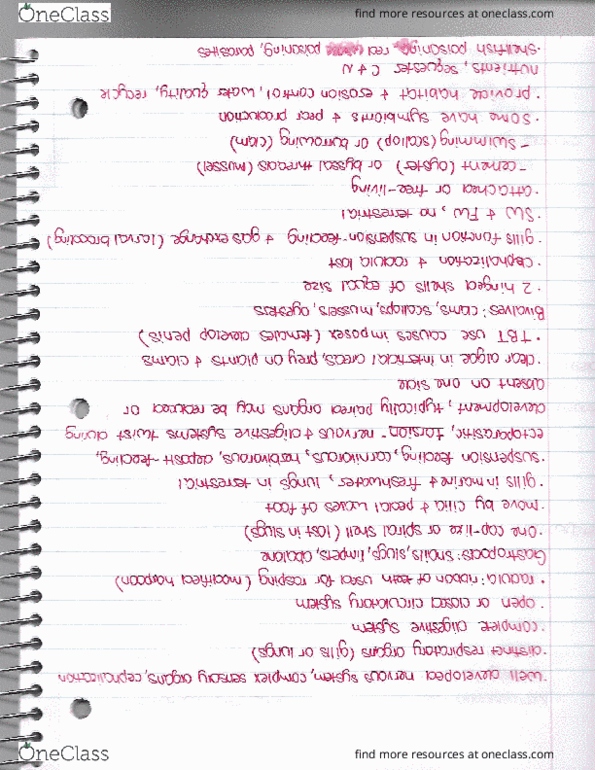 OneClass
find more resources at oneclass.com
·well developed nervous system, complex sensory organs, cephalization
·distinct respiratory organs (gills or lungs)
·complete digestive system
·open or closed circulatory system
·radula: ribbon of teeth used for rasping (modified harpoon)
Gastropods: snails, slugs, limpets, abalone
·one cap-like or spiral shell (lost in slugs)
·move by cilia & pedal waves of foot
·gills in marine & freshwater, lungs in terrestrial
·suspension feeding, carnivorous, herbivorous, deposit-feeding,
ectoparasitic, torsion- nervous & digestive systems twist during
development, typically paired organs may be reduced or
absent on one side
·clear algae in intertidal areas, prey on plants & clams
·TBT use causes imposex (females develop penis)
Bivalves: clams, scallops, mussels, oysters
·2 hinged shells of equal size
·cephalization & radula lost
·gills function in suspension-feeding & gas exchange (larval brooding)
·SW & FW, no terrestrial
·attached or free-living
-cement (oyster) or byssal threads (mussel)
-swimming (scallop) or burrowing (clam)
·some have symbionts & pearl production
·provide habitat & erosion control, water quality, recycle
nutrients, sequester C & N
·shellfish poisoning, red poisoning, parasites
OneClass
find more resources at oneclass.com